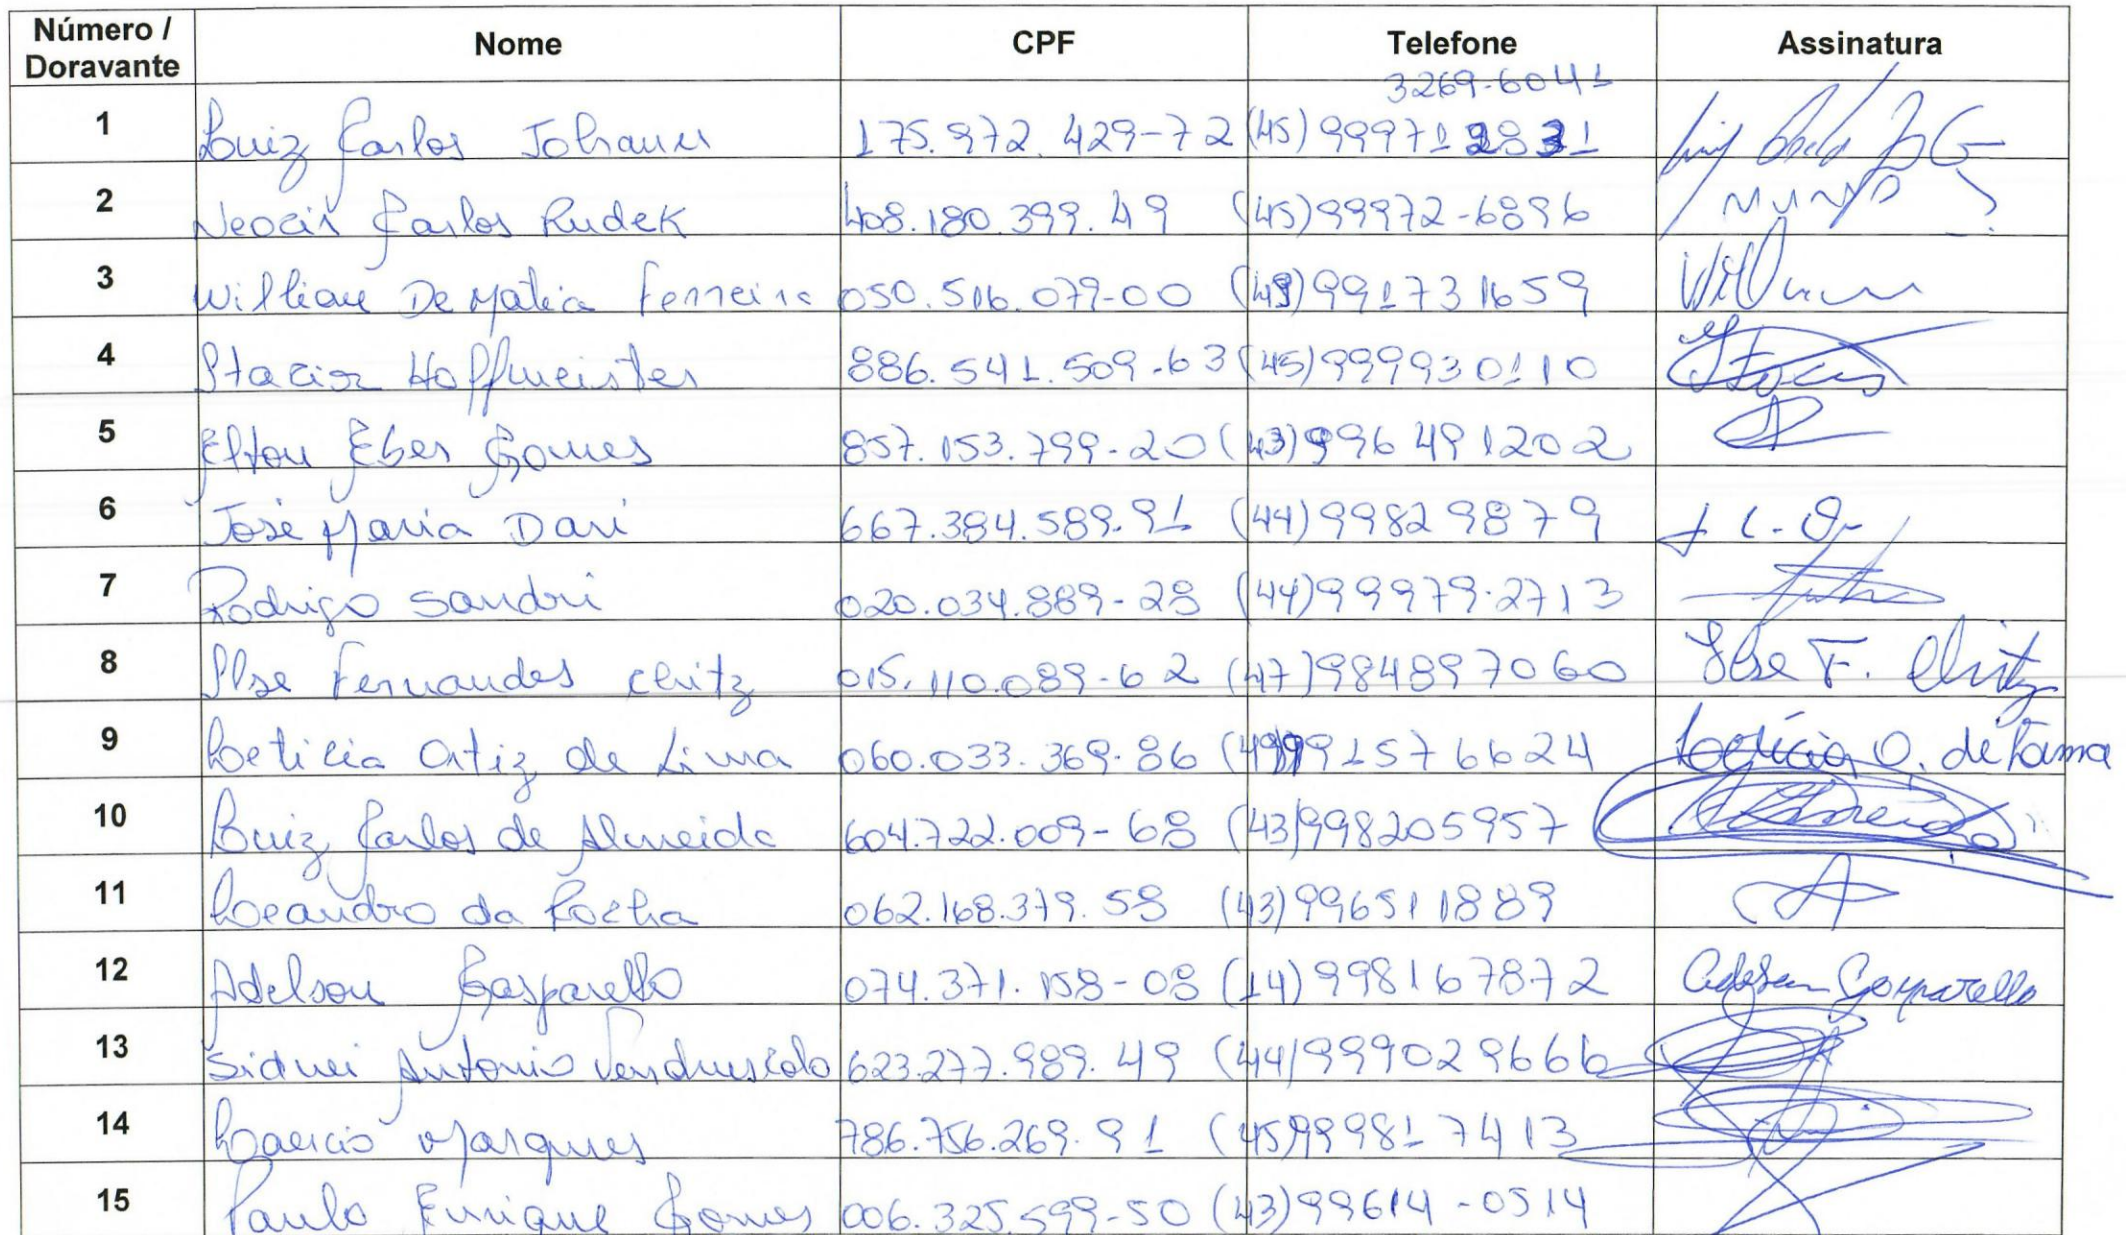 Número / Doravante Nome CPF Telefone Assinatura
3269-6041
1 Luiz Carlos Johann 175.972.429-72 (45) 99971 2831
2 Neocir Carlos Rudek 408.180.399.49 (45)99972-6896
3 Willian De Matia Ferreira 050.516.079-00 (49)991731659 Willian
4 Itacir Hoffmeister 886.541.509-63 (45)999930110 Itacir
5 Elton Eber Gomes 857.153.799-20 (43)996491202
6 José Maria Davi 667.384.589.91 (44)99829879
7 Rodrigo Sandri 020.034.889-28 (44)99979-2713
8 Ilse Fernandes Chitz 015.110.089-62 (47)984897060 Ilse F. Chitz
9 Leticia Ortiz de Lima 060.033.369-86 (49)991576624 Letícia O. de Lima
10 Luiz Carlos de Almeida 604.722.009-68 (43)998205957 Almeida
11 Leandro da Rocha 062.168.379.58 (43)996511889
12 Adelson Gasparello 074.371.158-08 (14)998167872 Adelson Gasparello
13 Sidnei Antonio Vendruscolo 623.277.989.49 (44)999029666
14 Laercio Marques 786.756.269.91 (45)999817413
15 Paulo Enrique Gomes 006.325.599-50 (43)99614-0514